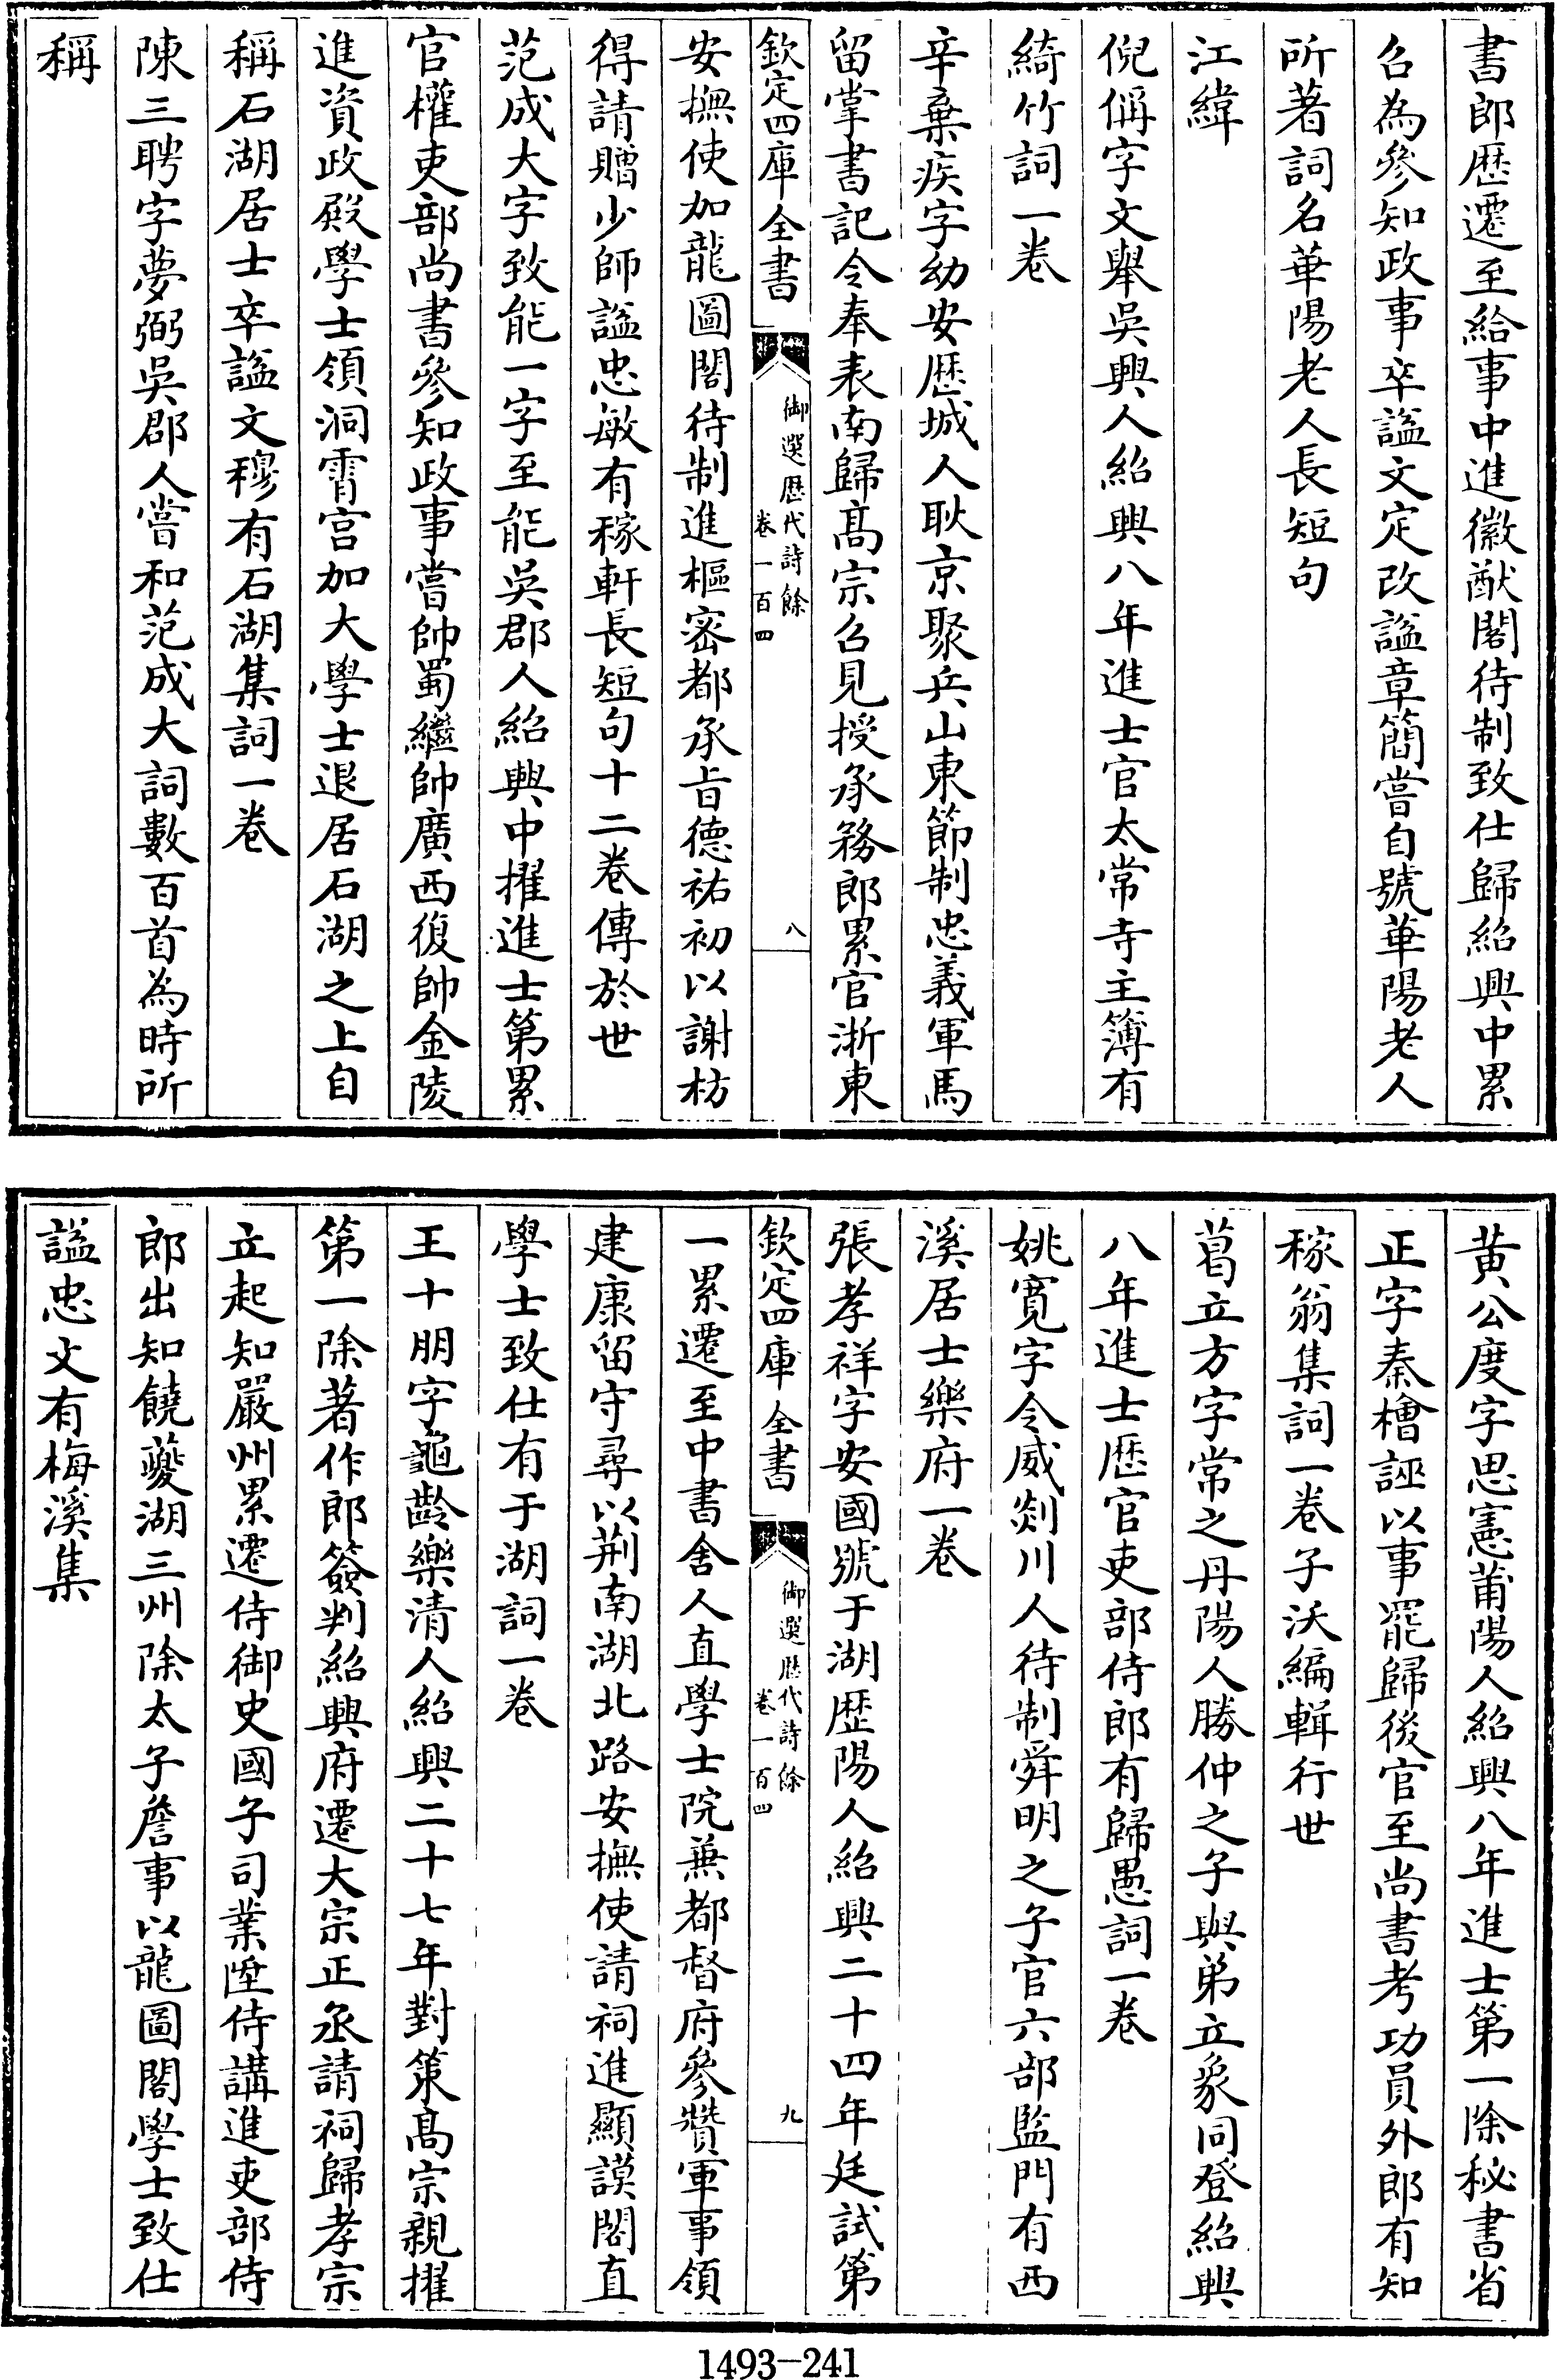 書郎歴遷至給事中進徽猷閣待制致仕歸紹興中累
召為參知政事卒諡文定改諡章簡嘗自號華陽老人
所著詞名華陽老人長短句
江緯
倪偁字文舉吳興人紹興八年進士官太常寺主簿有
綺竹詞一卷
辛棄疾字幼安歴城人耿京聚兵山東節制忠義軍馬
留掌書記令奉表南歸髙宗召見授承務郎累官浙東
欽定四庫全書
御選歴代詩餘
卷一百四
八
安撫使加龍圖閣待制進樞密都承旨德祐初以謝枋
得請贈少師諡忠敏有稼軒長短句十二卷傳於世
范成大字致能一字至能吳郡人紹興中擢進士第累
官權吏部尚書參知政事嘗帥蜀繼帥廣西復帥金陵
進資政殿學士領洞霄宫加大學士退居石湖之上自
稱石湖居士卒諡文穆有石湖集詞一卷
陳三聘字夢弼吳郡人嘗和范成大詞數百首為時所
稱
黄公度字思憲莆陽人紹興八年進士第一除秘書省
正字秦檜誣以事罷歸後官至尚書考功員外郎有知
稼翁集詞一卷子沃編輯行世
葛立方字常之丹陽人勝仲之子與弟立象同登紹興
八年進士歴官吏部侍郎有歸愚詞一卷
姚寛字令威剡川人待制舜明之子官六部監門有西
溪居士樂府一卷
張孝祥字安國號于湖歴陽人紹興二十四年廷試第
欽定四庫全書
御選歴代詩餘
卷一百四
九
一累遷至中書舍人直學士院兼都督府參贊軍事領
建康留守尋以荆南湖北路安撫使請祠進顯謨閣直
學士致仕有于湖詞一卷
王十朋字龜齡樂清人紹興二十七年對策髙宗親擢
第一除著作郎簽判紹興府遷大宗正丞請祠歸孝宗
立起知嚴州累遷侍御史國子司業陞侍講進吏部侍
郎出知饒夔湖三州除太子詹事以龍圖閣學士致仕
諡忠文有梅溪集
1493-241